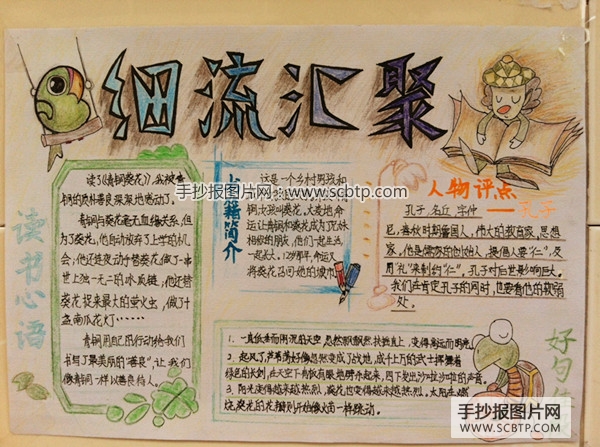 细流汇聚
读书心语
读了《青铜葵花》,我被青
铜的质朴善良深深地感动了。
青铜与葵花毫无血缘关系,但
为了葵花,他自动放弃了上学的机
会;他还连夜动手替葵花做了一串
世上独一无二的冰质链,他还替
葵花捉来最大的萤火虫,做了十
盏南瓜花灯……
青铜用自己的行动给我们
书写了最美丽的“善良”,让我们
像青铜一样以善良待人。
书籍简介
这是一个乡村男孩和
铜,女孩叫葵花。大麦地命
运让青铜和葵花成为兄妹
相称的朋友,他们一起生活
一起长大。12岁那年,命运又
将葵花召回她的城市
手抄报图片网:www.scbtp.com
人物评点
——孔子
孔子,名丘,字仲
尼,春秋时期鲁国人,伟大的教育家,思想
家,他是儒家的创始人,提倡人要“仁”,及
用“礼”来制约“仁”,孔子对后世影响巨大。
我们应肯定孔子的同时,也要看他的软弱
处。
好句
1、一直低垂而阴沉的天空,忽然飘飘然扶摇直上,变得高远而明亮
2、起风了,芦苇荡好像忽然变成了战地,成千上万的武士挥舞着
绿色的长剑,在天空下有板有眼地劈杀起来,四下发出沙啦沙啦的声音。
3、阳光变得越来越热烈,葵花也变得越来越热烈,太阳在燃
烧,葵花的花瓣则开始像火苗一样跳动。
手抄报图片网
WWW.SCBTP.COM